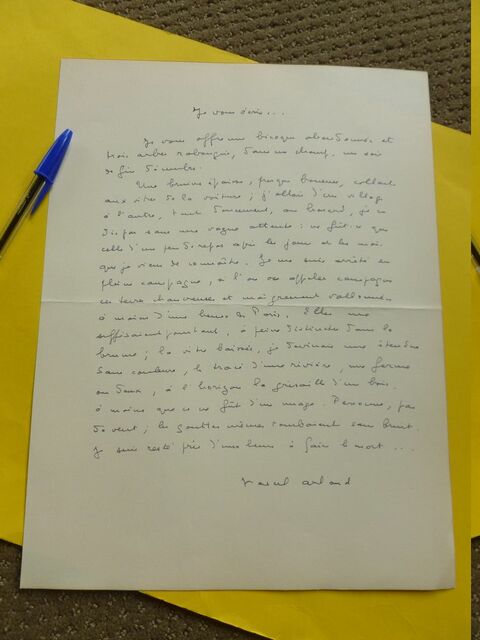 Je vous écris...
Je vous offre une bicoque abandonnée et
trois arbres rabougris, dans un champ, un soir
de fin décembre.
Une brume épaisse, presque boueuse, collait
aux vitres de la voiture ; j'allais d'un village
à l'autre, tout doucement, au hasard, je ne
dis pas sans une vague attente : ne fût-ce que
celle d'un peu de repos après les jours et les mois
que je viens de connaître. Je me suis arrêté en
pleine campagne, si l'on ose appeler campagne
ces terres chauves et maigrement vallonnées
à moins d'une heure de Paris. Elles me
suffisaient pourtant, à peine distinctes dans la
brume ; la vitre baissée, je devinais une étendue
sans couleur, le tracé d'une rivière, une ferme
ou deux, à l'horizon la grisaille d'un bois,
à moins que ce ne fût d'un nuage. Personne, pas
de vent ; les gouttes mêmes tombaient sans bruit.
Je suis resté près d'une heure à faire le mort ...
Marcel Arland